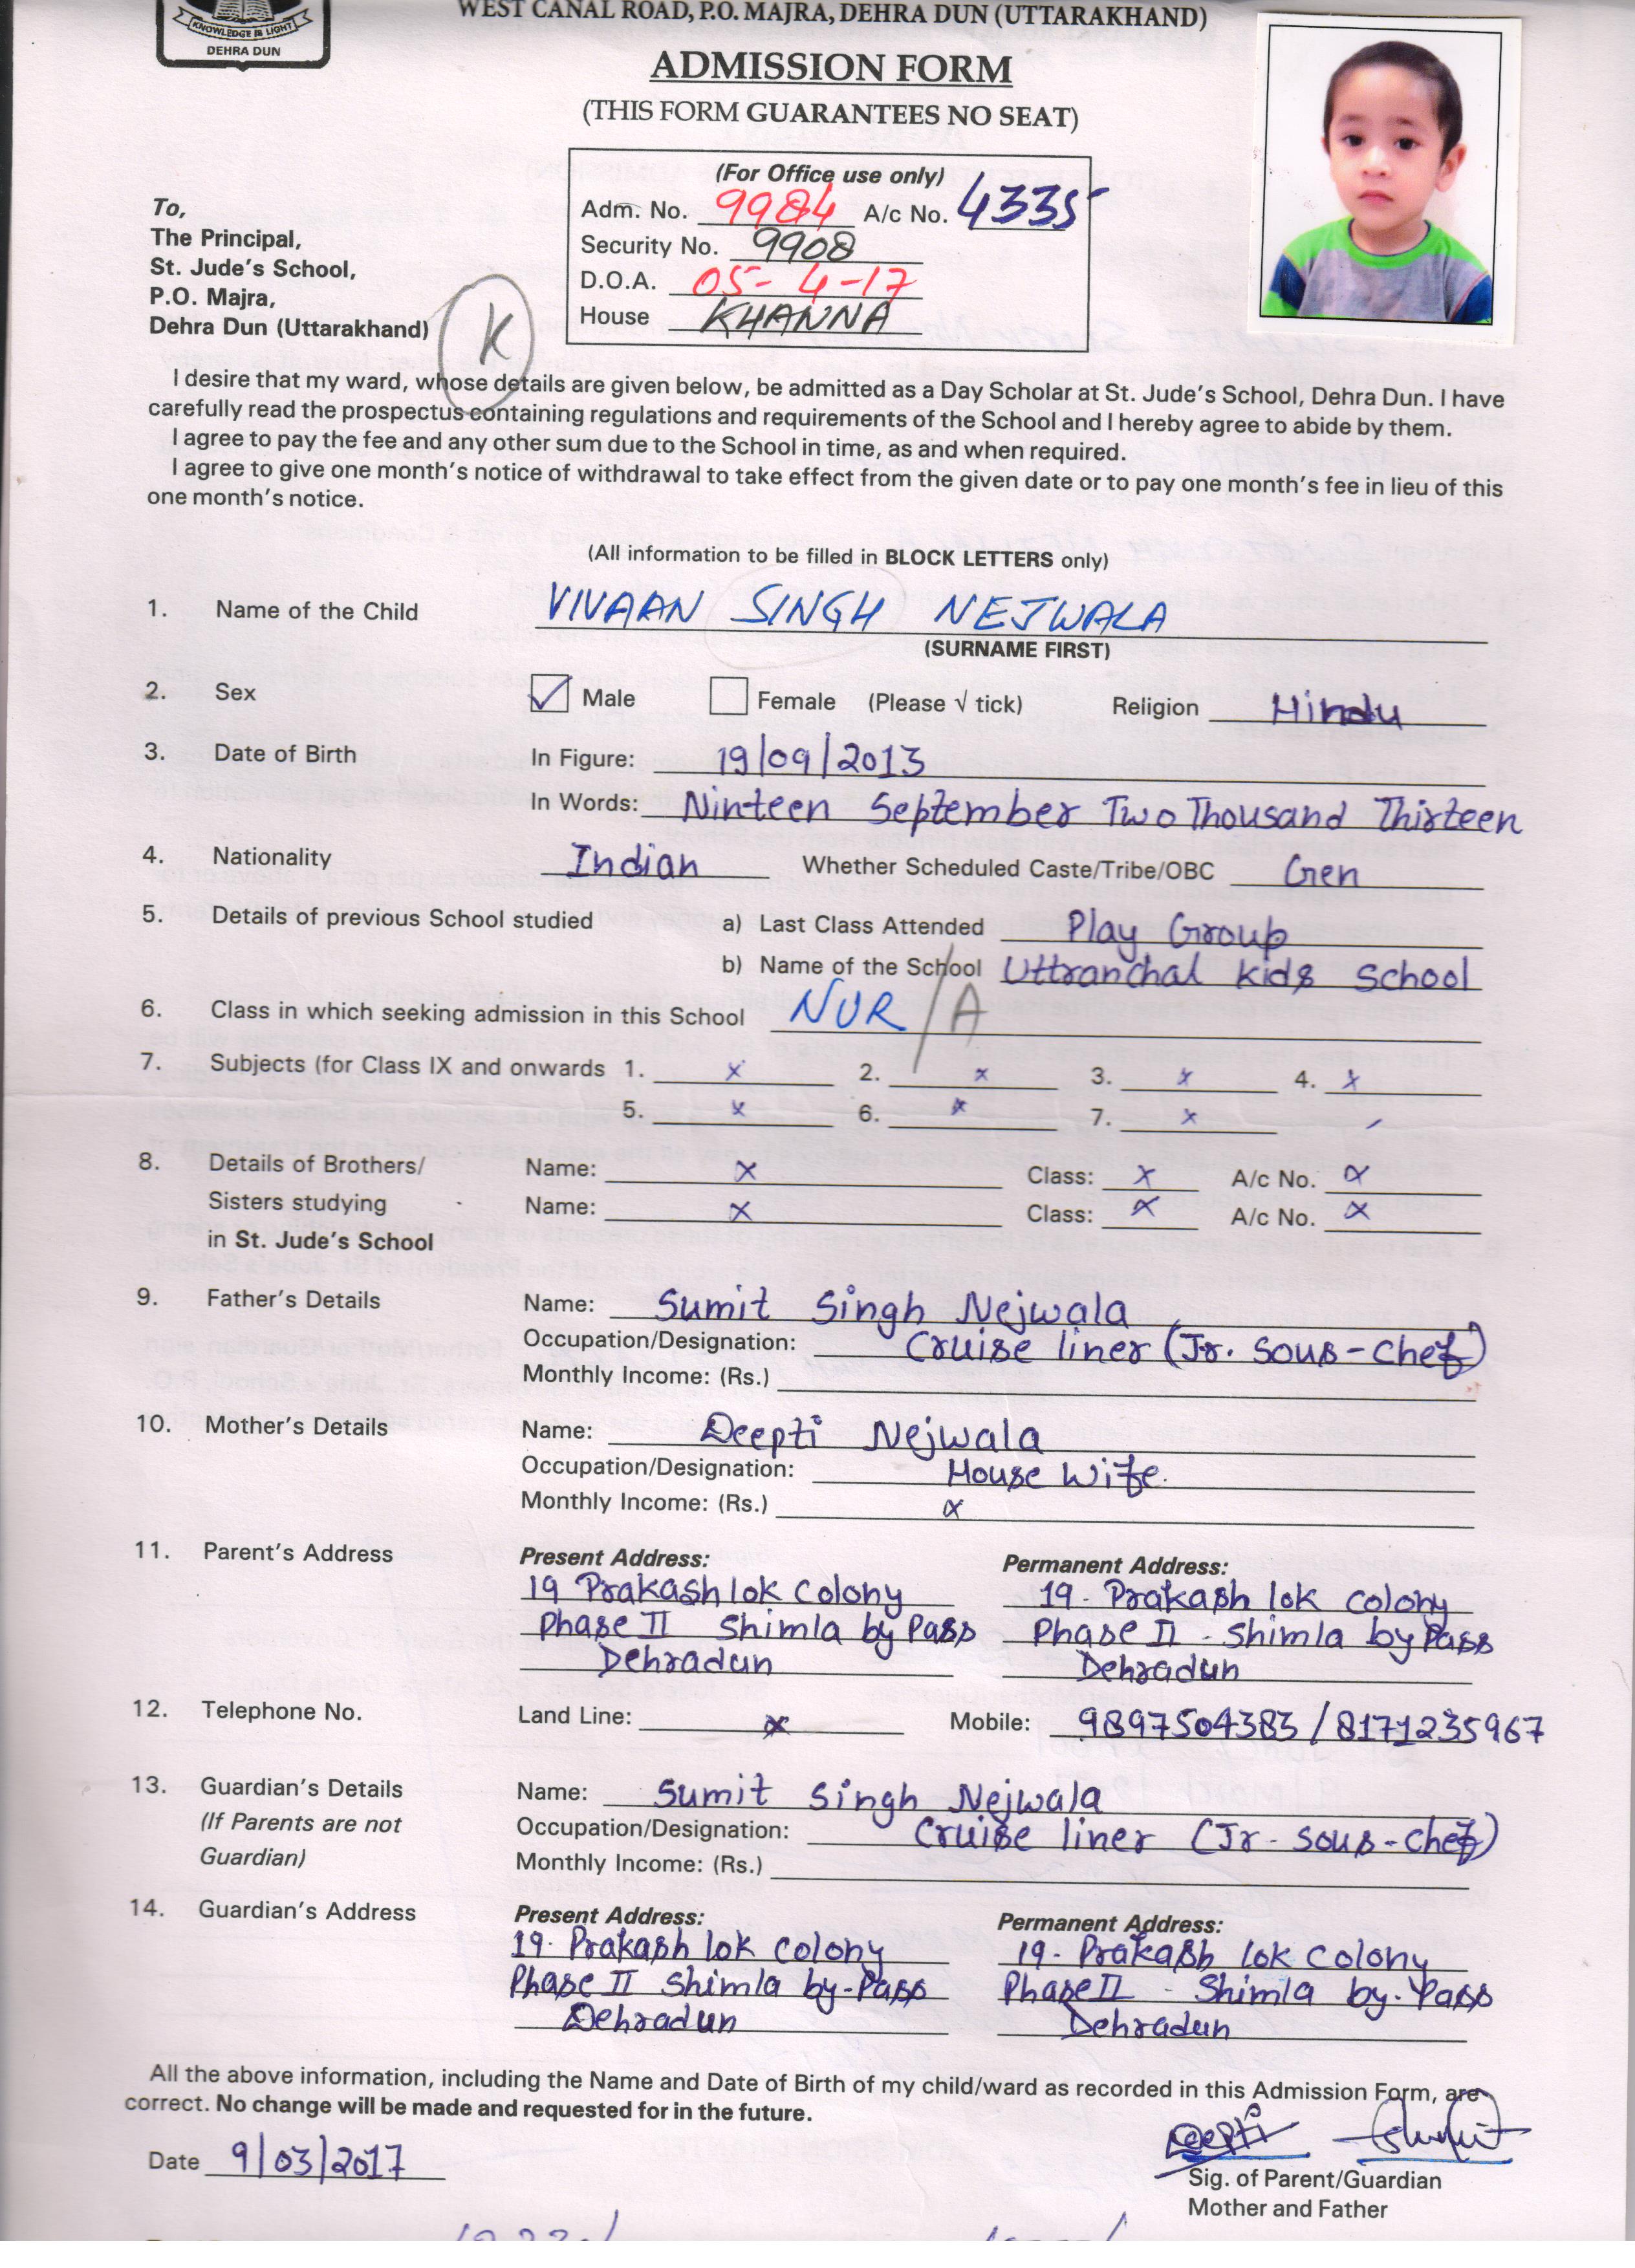 KNOWLEDGE IS LIGHT
DEHRA DUN
WEST CANAL ROAD, P.O. MAJRA, DEHRA DUN (UTTARAKHAND)
ADMISSION FORM
(THIS FORM GUARANTEES NO SEAT)
(For Office use only)
Adm. No. 9984 A/c No. 4335
Security No. 9908
D.O.A. 05-4-17
House KHANNA
To,
The Principal,
St. Jude's School,
P.O. Majra,
Dehra Dun (Uttarakhand)
K
I desire that my ward, whose details are given below, be admitted as a Day Scholar at St. Jude's School, Dehra Dun. I have
carefully read the prospectus containing regulations and requirements of the School and I hereby agree to abide by them.
I agree to pay the fee and any other sum due to the School in time, as and when required.
I agree to give one month's notice of withdrawal to take effect from the given date or to pay one month's fee in lieu of this
one month's notice.
(All information to be filled in BLOCK LETTERS only)
1. Name of the Child VIVAAN SINGH NEJWALA
(SURNAME FIRST)
2. Sex Male Female (Please √ tick) Religion Hindu
3. Date of Birth In Figure: 19/09/2013
In Words: Ninteen September Two Thousand Thirteen
4. Nationality Indian Whether Scheduled Caste/Tribe/OBC Gen
5. Details of previous School studied a) Last Class Attended Play Group
b) Name of the School Uttranchal kids School
6. Class in which seeking admission in this School NUR/A
7. Subjects (for Class IX and onwards 1. x 2. x 3. x 4. x
5. x 6. x 7. x
8. Details of Brothers/ Name: x Class: x A/c No. x
Sisters studying Name: x Class: x A/c No. x
in St. Jude's School
9. Father's Details Name: Sumit Singh Nejwala
Occupation/Designation: Cruise liner (Jr. Sous-Chef)
Monthly Income: (Rs.)
10. Mother's Details Name: Deepti Nejwala
Occupation/Designation: House Wife.
Monthly Income: (Rs.) x
11. Parent's Address Present Address: Permanent Address:
19 Prakash lok Colony 19. Prakash lok colony
Phase II Shimla by Pass Phase II - Shimla by Pass
Dehradun Dehradun
12. Telephone No. Land Line: x Mobile: 9897504383/8171235967
13. Guardian's Details Name: Sumit Singh Nejwala
(If Parents are not Occupation/Designation: Cruise liner (Jr- Sous-Chef)
Guardian) Monthly Income: (Rs.)
14. Guardian's Address Present Address: Permanent Address:
19. Prakash lok Colony 19. Prakash lok Colony
Phase II Shimla by-Pass Phase II - Shimla by-Pass
Dehradun Dehradun
All the above information, including the Name and Date of Birth of my child/ward as recorded in this Admission Form, are
correct. No change will be made and requested for in the future.
Deepti
Date 9/03/2017
Sig. of Parent/Guardian
Mother and Father